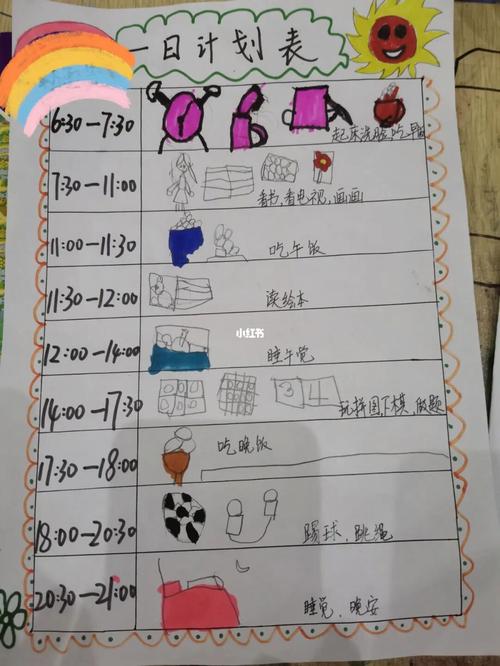 一日计划表
6:30—7:30
起床洗脸,吃早
7:30—11:00
看书,看电视,画画
11:00—11:30
吃午饭
11:30—12:00
读绘本
小红书
12:00—14:00
睡午觉
14:00—17:30
3 4
玩拼图,下棋,做题
17:30—18:00
吃晚饭
18:00—20:30
踢球、跳绳
20:30—21:00
睡觉、晚安